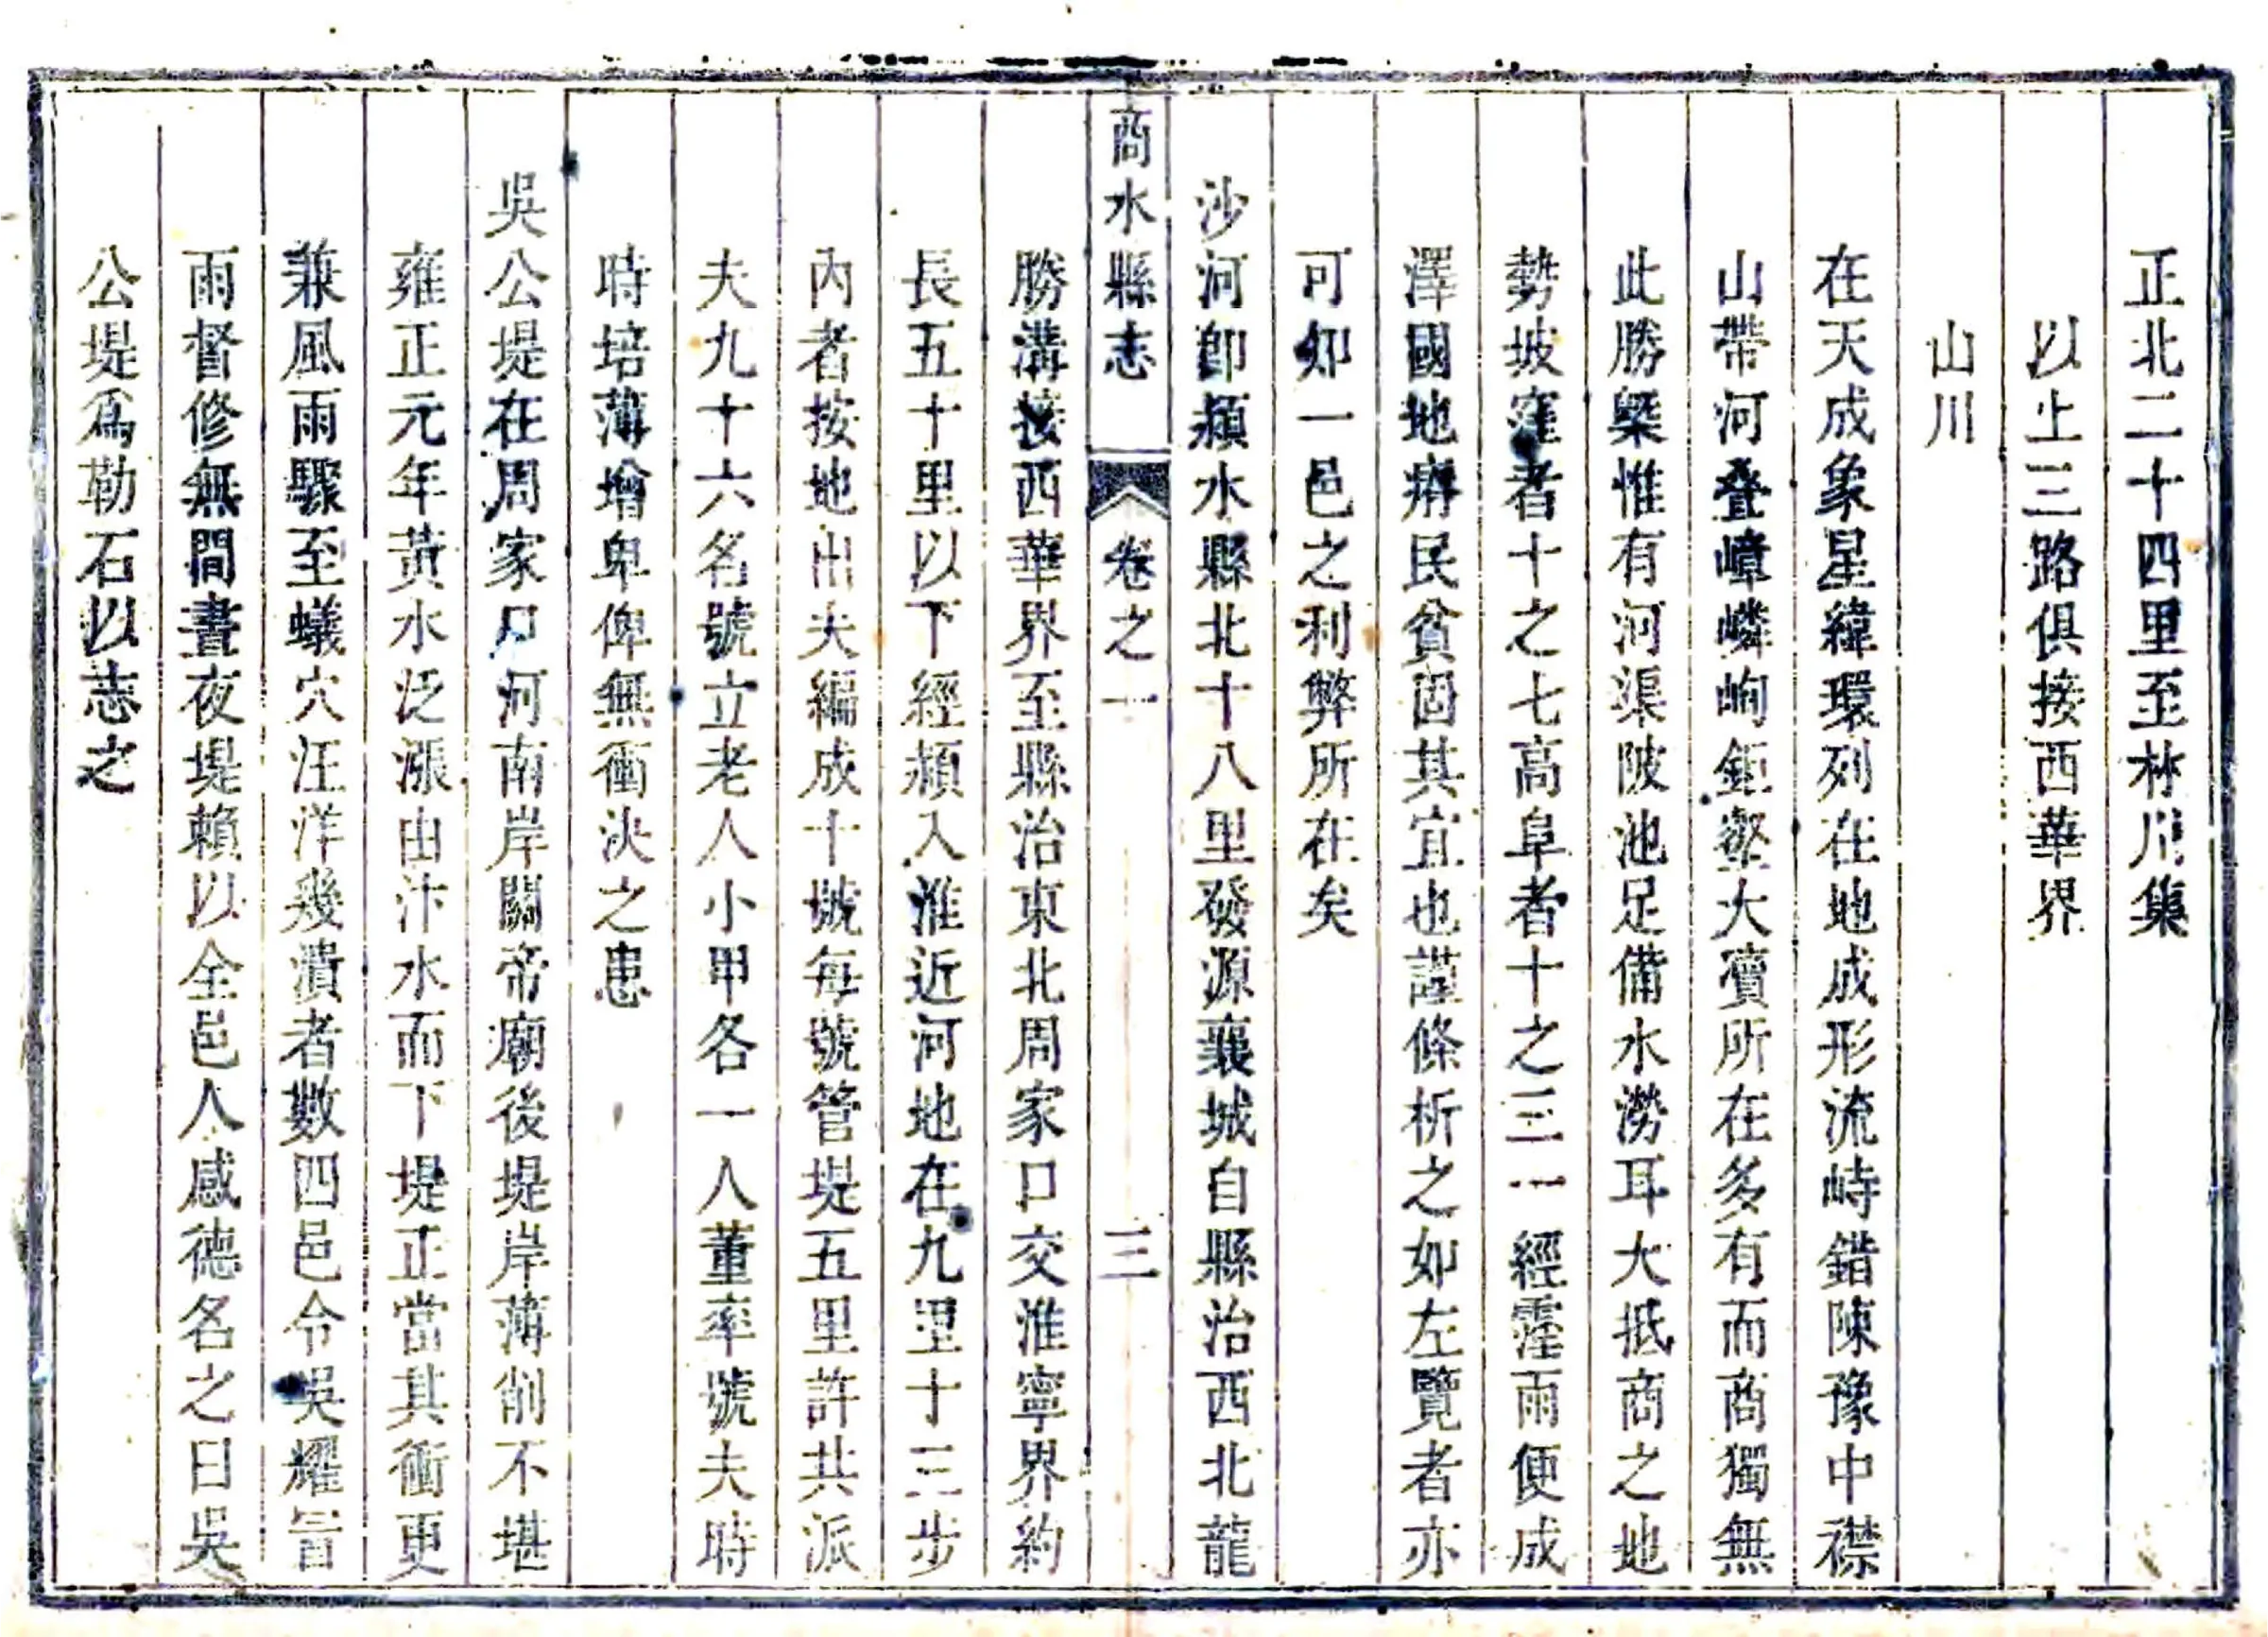 正北二十四里至林川集
以上三路俱接西華界
山川
在天成象星緯環列在地成形流峙錯陳豫中襟
山帶河叠嶂嶙峋鉅壑大瀆所在多有而商獨無
此勝槩惟有河渠陂池足備水澇耳大抵商之地
勢坡窪者十之七高阜者十之三一經霪雨便成
澤國地瘠民貧固其宜也謹條析之如左覽者亦
可知一邑之利弊所在矣
沙河卽潁水縣北十八里發源襄城自縣治西北龍
商水縣志 卷之一 三
勝溝接西華界至縣治東北周家口交淮寧界約
長五十里以下經潁入淮近河地在九里十三步
內者按地出夫編成十號每號管堤五里許共派
夫九十六名號立老人小甲各一人董率號夫時
時培薄增卑俾無衝決之患
吳公堤在周家口河南岸關帝廟後堤岸薄削不堪
雍正元年黃水泛漲由汴水而下堤正當其衝更
兼風雨驟至蟻穴汪洋幾潰者數四邑令吳耀冒
雨督修無間晝夜堤賴以全邑人感德名之曰吳
公堤爲勒石以志之